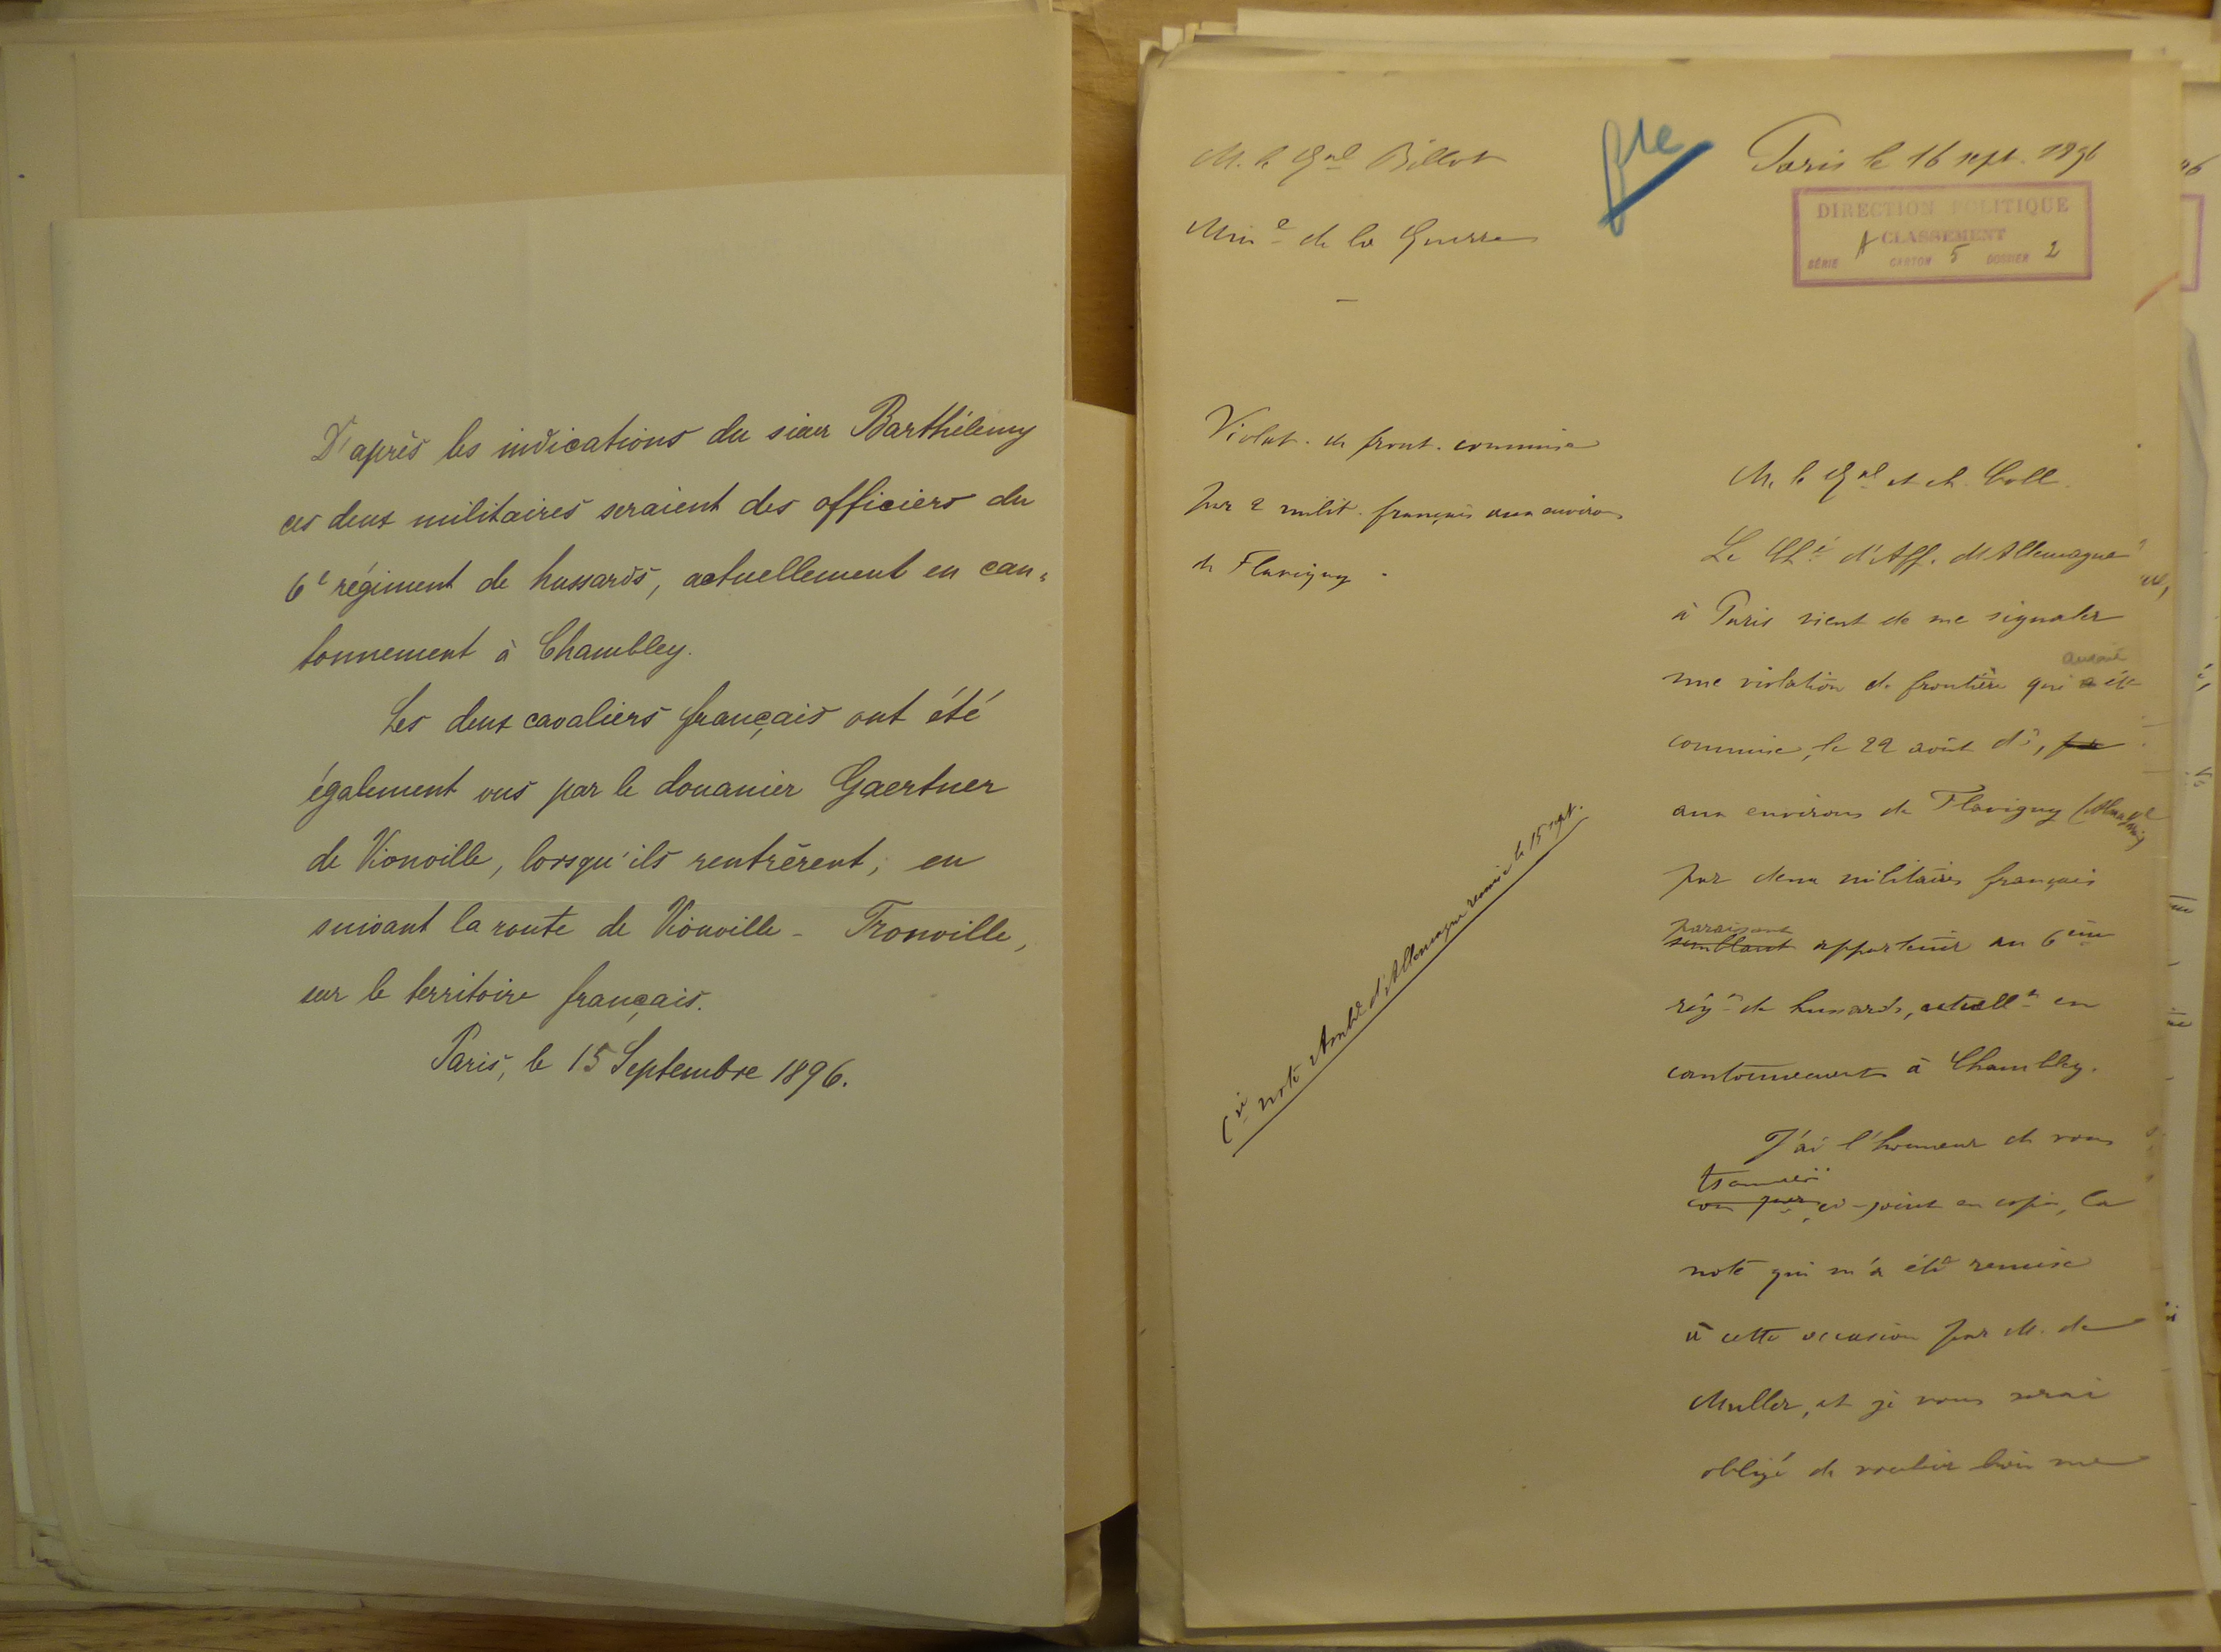 D'après les indications du sieur Barthélemy
ces deux militaires seraient des officiers du
6e régiment de hussards, actuellement en can=
tonnement à Chambley.
Les deux cavaliers français ont été
également vus par le douanier Gaertner
de Vionville, lorsqu'ils rentrèrent, en
suivant la route de Vionville - Tronville,
sur le territoire français.
Paris, le 15 Septembre 1896.
M. le Gal Billot
Mine de la Guerre
Paris le 16 sept. 1896
DIRECTION POLITIQUE
A CLASSEMENT
SÉRIE CARTON 5 DOSSIER 2
Violat. de front. commise
par 2 milit. français aux environs
de Flavigny.
Ci note Ambde d'Allemagne remise le 15 sept.
M. le Gal et ch. Coll.
Le Ché d'Aff. d'Allemagne
à Paris vient de me signaler
une violation de frontière qui aurait été
commise, le 22 août dr, par
aux environs de Flavigny
par deux militaires français
paraissant
semblant appartenir au 6ème
régt de hussards, actuellt en
cantonnement à Chambley.
J'ai l'honneur de vous
ci-joint en copie, la
note qui m'a été remise
à cette occasion par M. de
Muller, et je vous serai
obligé de vouloir bien me